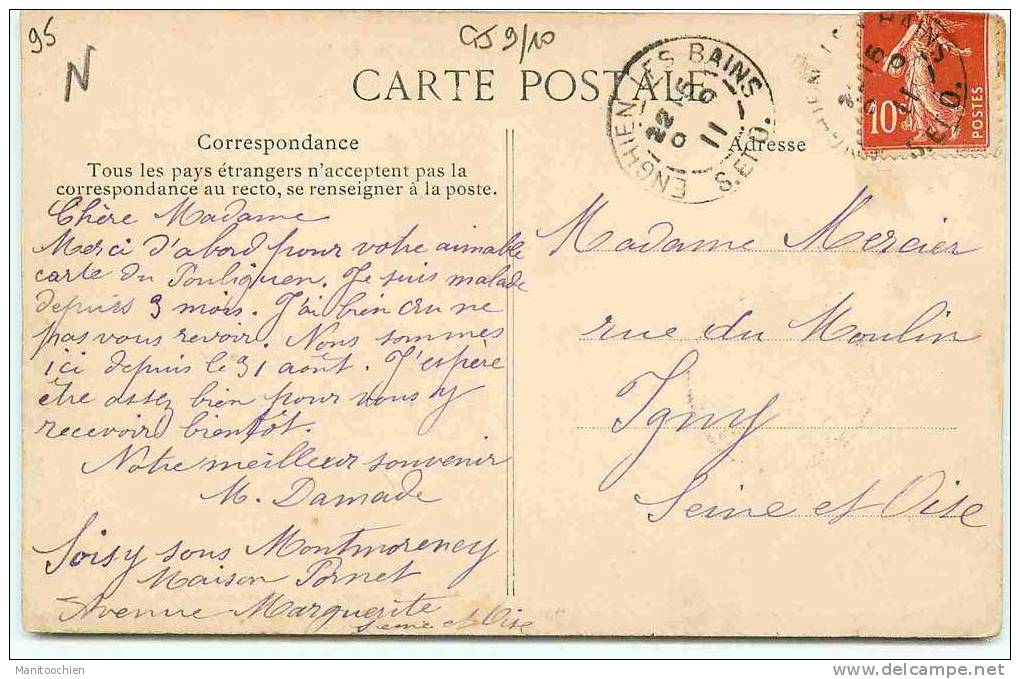 95
N
CARTE POSTALE
ENGHIEN LES BAINS
22 15
9
11
S. ET O.
10c
POSTES
Correspondance
Adresse
Tous les pays étrangers n'acceptent pas la
correspondance au recto, se renseigner à la poste.
Chère Madame
Merci d'abord pour votre aimable
carte du Pouliguen. Je suis malade
depuis 3 mois. J'ai bien cru ne
pas vous revoir. Nous sommes
ici depuis le 31 août. J'espère
être assez bien pour vous y
recevoir bientôt.
Notre meilleur souvenir
M. Damade
Soisy sous Montmorency
Maison Pornet
Avenue Marguerite
Seine et Oise
Madame Mercier
rue du Moulin
Igny
Seine et Oise
Manitoochien
www.delcampe.net